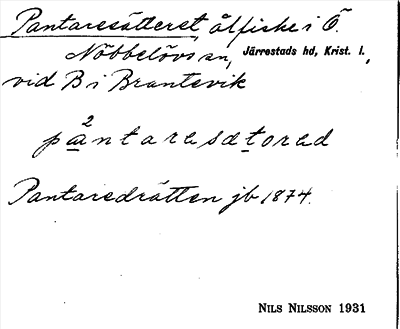 Pantaresätteret, ålfiske i Ö.
Nöbbelövs sn, Järrestads hd, Krist. l.,
vid B i Brantevik
2
pantaresætored
Pantaredrätten jb 1874.
NILS NILSSON 1931